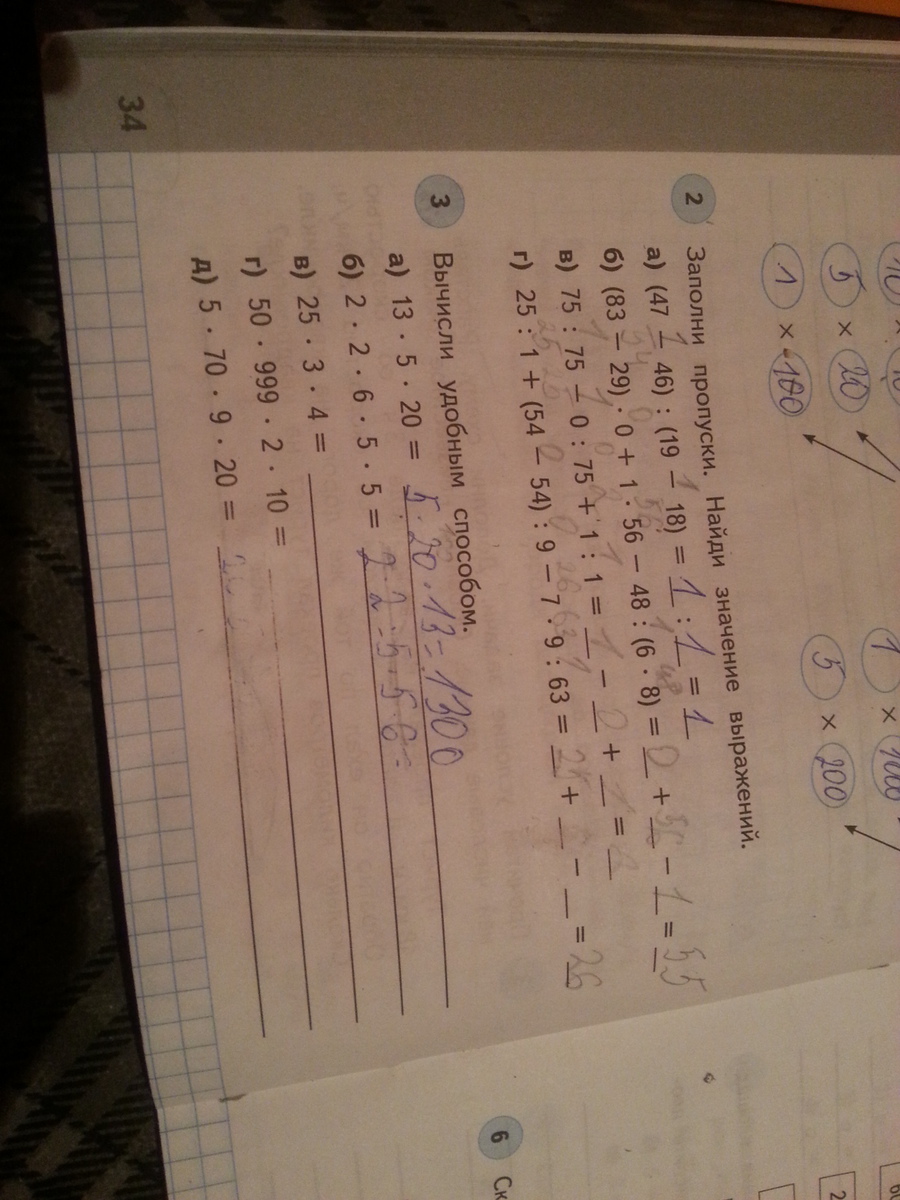 10
5 × 20
1 × 100
1 × 1000
5 × 200
2 Заполни пропуски. Найди значение выражений.
а) (47 – 46) : (19 – 18) = 1 : 1 = 1
б) (83 – 29) · 0 + 1 · 56 – 48 : (6 · 8) = 0 + 56 – 1 = 55
в) 75 : 75 – 0 : 75 + 1 : 1 = 1 – 0 + 1 =
г) 25 : 1 + (54 – 54) : 9 – 7 · 9 : 63 = + – = 26
3 Вычисли удобным способом.
а) 13 · 5 · 20 = 5 · 20 · 13 = 1300
б) 2 · 2 · 6 · 5 · 5 = 2 · 2 · 5 · 5 · 6 =
в) 25 · 3 · 4 =
г) 50 · 999 · 2 · 10 =
д) 5 · 70 · 9 · 20 =
34
6 Ск